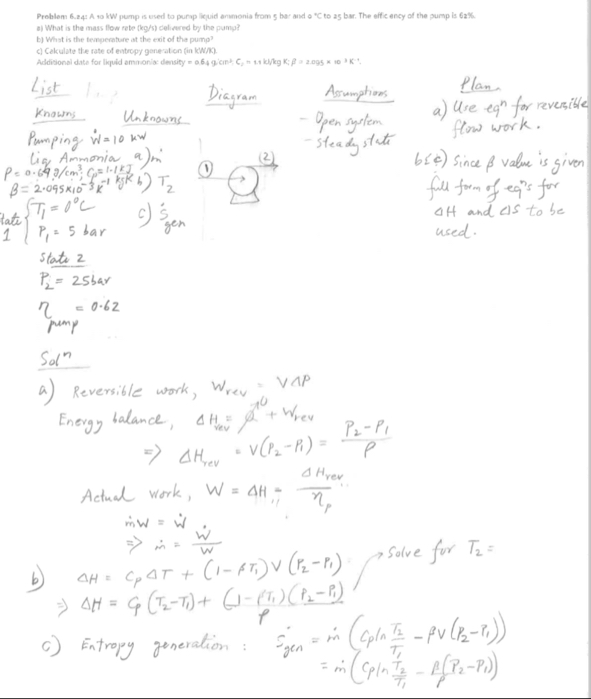 Problem 6.24: A 10 kW pump is used to pump liquid ammonia from 5 bar and 0 °C to 25 bar. The efficiency of the pump is 62%.
a) What is the mass flow rate (kg/s) delivered by the pump?
b) What is the temperature at the exit of the pump?
c) Calculate the rate of entropy generation (in kW/K).
Additional data for liquid ammonia: density = 0.64 g/cm³; Cp = kJ/kg K; β = 2.095 × 10⁻³ K⁻¹.
List
Knowns
Unknowns
Pumping Ẇ = 10 kW
Liq Ammonia
ρ = 0.64 g/cm³, Cp = 1.1 kJ/kgK
β = 2.095×10⁻³ K⁻¹
State 1 { T₁ = 0°C
P₁ = 5 bar
a) ṁ
b) T₂
c) Ṡgen
State 2
P₂ = 25 bar
η pump = 0.62
Diagram
(1)
(2)
Assumptions
- Open system
- Steady state
Plan
a) Use eqⁿ for reversible
flow work.
b & c) Since β value is given
full form of eqⁿs for
ΔH and ΔS to be
used.
Solⁿ
a) Reversible work, Wrev = VΔP
Energy balance, ΔHrev = Q⁰ + Wrev
⇒ ΔHrev = V(P₂-P₁) = P₂-P₁ / ρ
Actual work, W = ΔH = ΔHrev / ηp
ṁW = Ẇ
⇒ ṁ = Ẇ / W
b) ΔH = CpΔT + (1-βT₁)V(P₂-P₁)
⇒ ΔH = Cp(T₂-T₁) + (1-βT₁)(P₂-P₁) / ρ
→ Solve for T₂ =
c) Entropy generation : Ṡgen = ṁ (Cp ln T₂/T₁ - βV(P₂-P₁))
= ṁ (Cp ln T₂/T₁ - β/ρ(P₂-P₁))